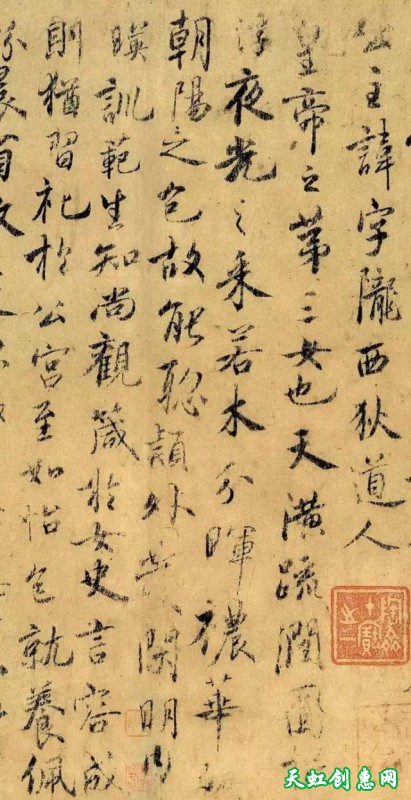 公主諱字隴西狄道人
皇帝之第三女也天潢疏潤圓
浮夜光之采若木分暉禯華
朝陽之色故能聡穎外發閑明内
暎訓範生知尚觀箴於女史言容成
則猶習礼於公宮至如怡色就養佩
晨省敬
天虹创惠网